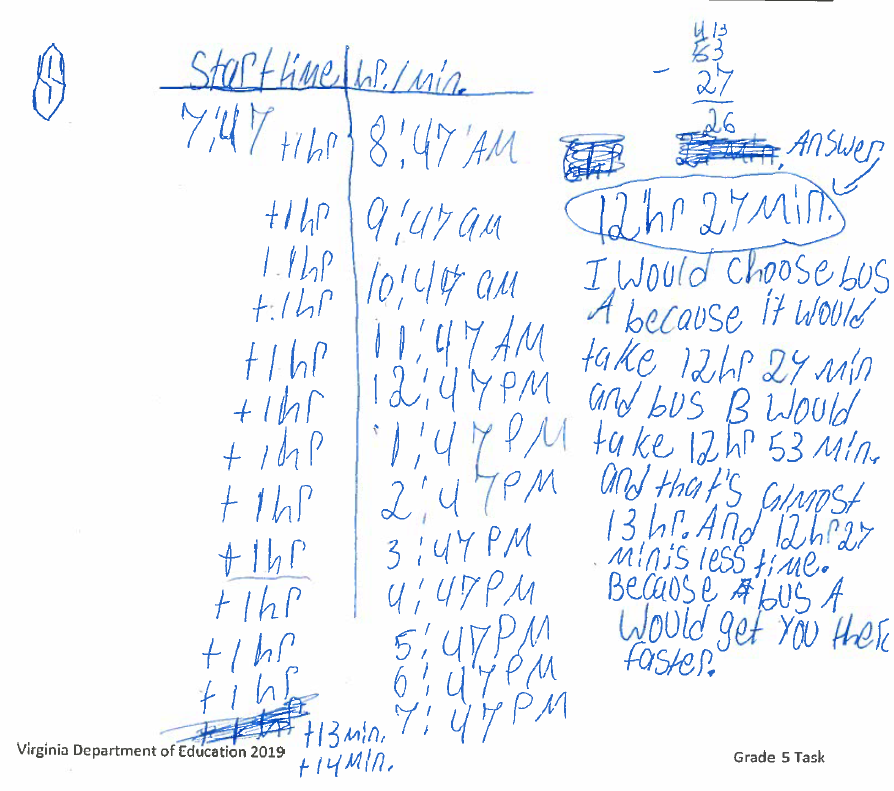 Start time hr./min.
7:47 +1hr 8:47 AM
+1hr 9:47 am
1.1hr
+.1hr 10:47 am
+1hr 11:47 AM
+1hr 12:47 PM
+1hr 1:47 PM
+1hr 2:47 PM
+1hr 3:47 PM
+1hr 4:47 PM
+1hr 5:47 PM
+1hr 6:47 PM
7:47 PM
+13 min.
+14 min.
4 13
53
- 27
26
Answer
12 hr 27 Min.
I would choose bus
A because it would
take 12 hr 27 min
and bus B would
take 12 hr 53 Min.
and that's almost
13 hr. And 12 hr 27
min is less time.
Because bus A
would get you there
faster.
Virginia Department of Education 2019
Grade 5 Task